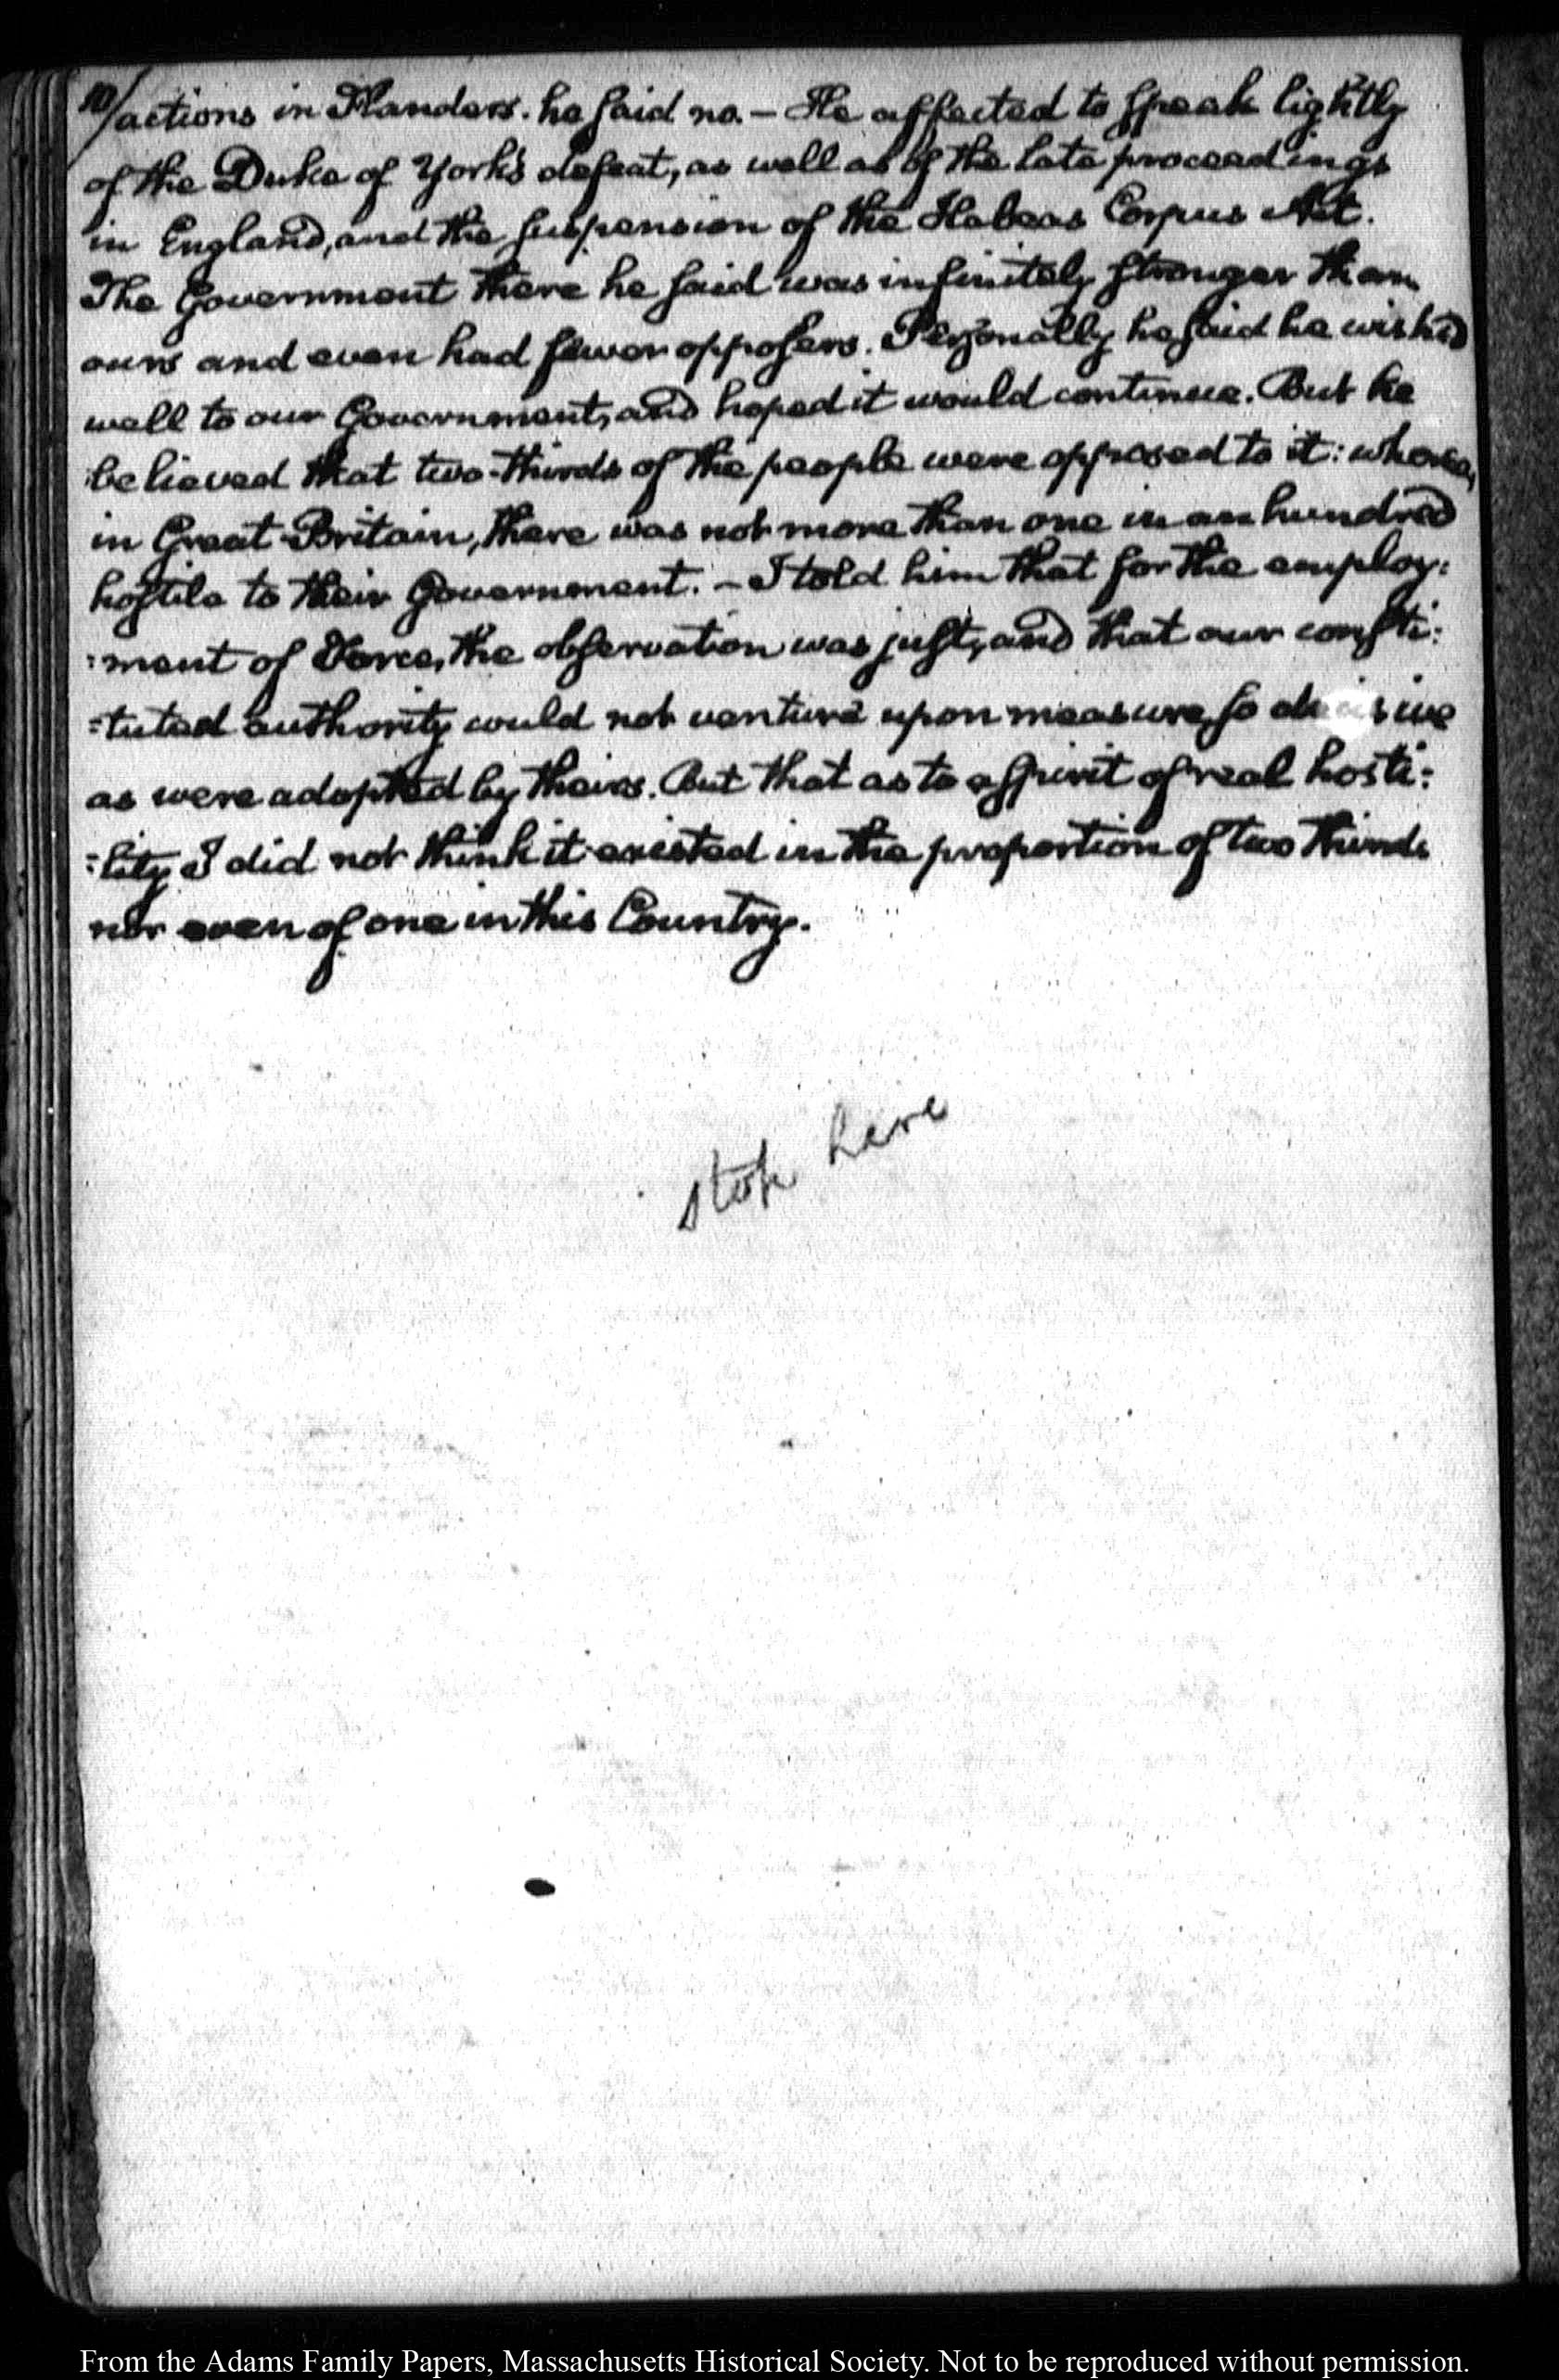 10/
actions in Flanders. he said no. – He affected to speak lightly
of the Duke of York's defeat, as well as of the late proceedings
in England, and the suspension of the Habeas Corpus Act.
The Government there he said was infinitely stronger than
ours and even had fewer opposers. Personally he said he wished
well to our Government, and hoped it would continue. But he
believed that two-thirds of the people were opposed to it: whereas,
in Great-Britain, there was not more than one in an hundred
hostile to their Government. – I told him that for the employ:
:ment of Force, the observation was just, and that our consti:
:tuted authority would not venture upon measures so decisive
as were adopted by theirs. But that as to a spirit of real hosti:
:lity I did not think it existed in the proportion of two thirds
nor even of one in this Country.
stop here
From the Adams Family Papers, Massachusetts Historical Society. Not to be reproduced without permission.